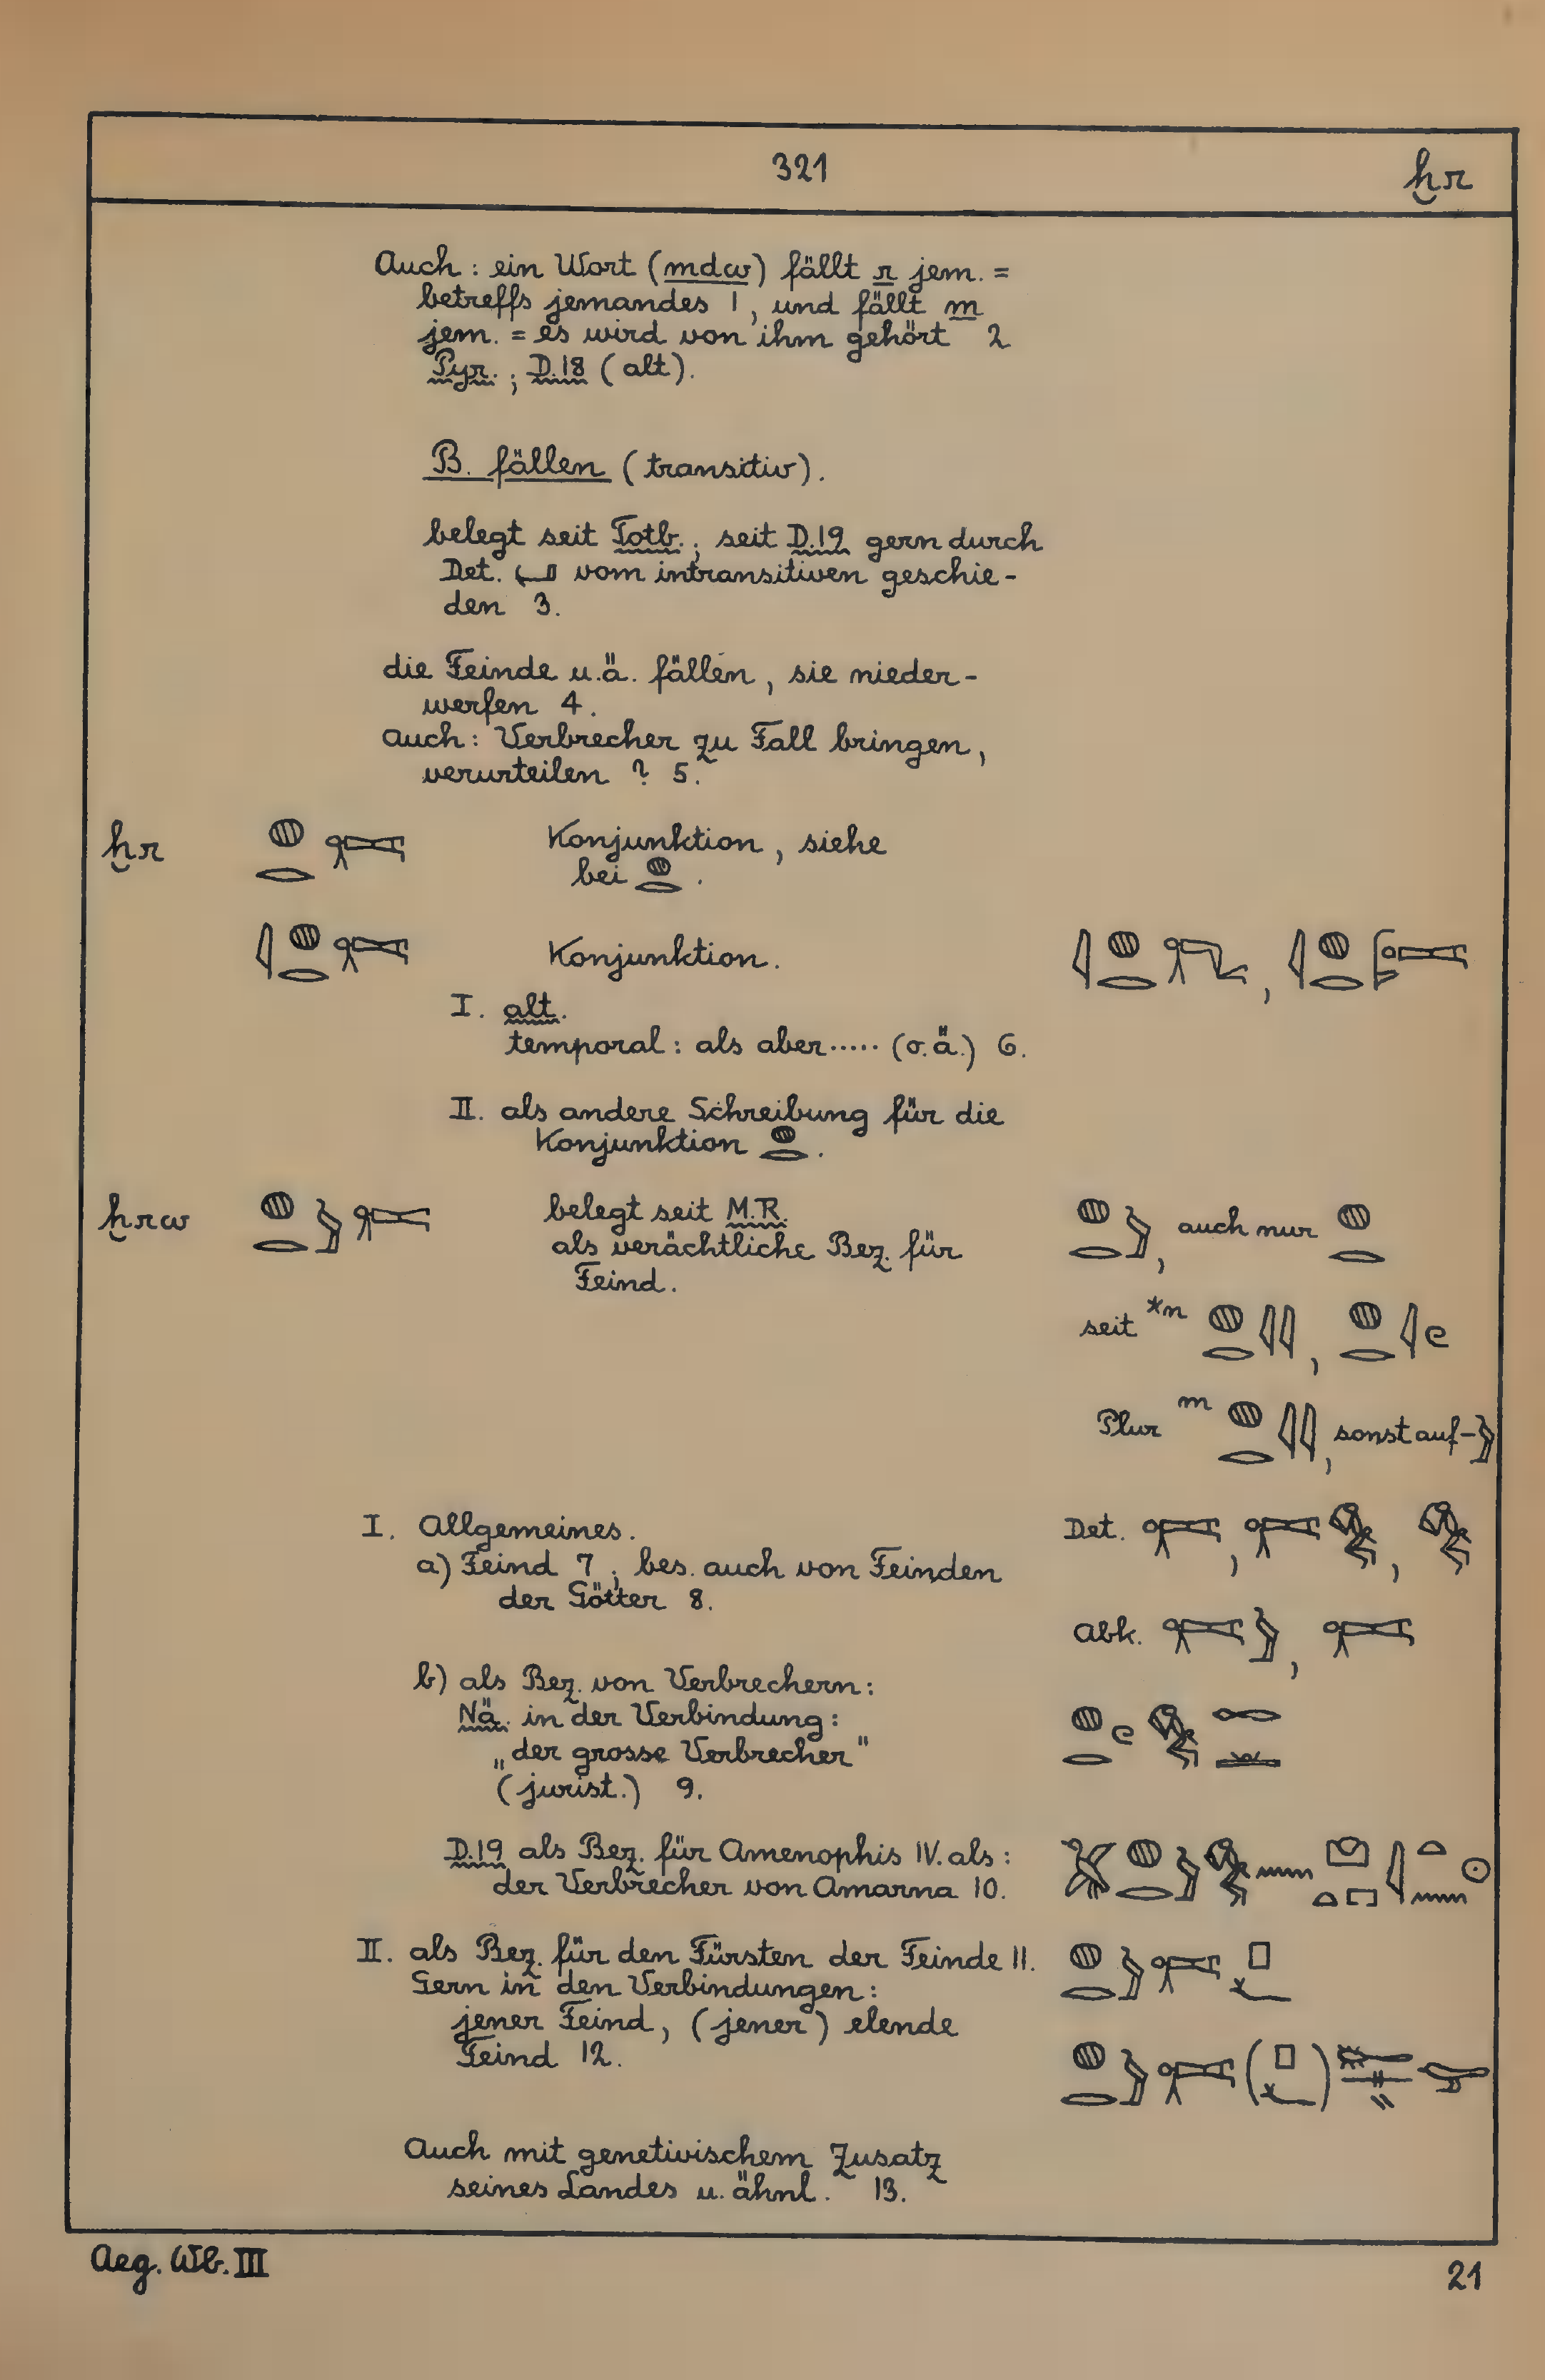 321
ḫr
Auch : ein Wort (mdw) fällt r jem. =
betreffs jemandes 1, und fällt m
jem. = es wird von ihm gehört 2
Pyr. ; D.18 (alt).
B. fällen (transitiv).
belegt seit Totb. ; seit D.19 gern durch
Det. 𓂝 vom intransitiven geschie-
den 3.
die Feinde u.ä. fällen, sie nieder-
werfen 4.
Auch : Verbrecher zu Fall bringen,
verurteilen ? 5.
ḫr 𓐍𓂋 Konjunktion, siehe
bei 𓐍𓂋.
𓇋𓐍𓂋 Konjunktion. 𓇋𓐍𓂋 , 𓇋𓐍𓂋
I. alt.
temporal : als aber ..... (o.ä.) 6.
II. als andere Schreibung für die
Konjunktion 𓐍𓂋.
ḫrw 𓐍𓂋𓅱 belegt seit M.R.
als verächtliche Bez. für
Feind.
𓐍𓂋 , auch nur 𓐍𓂋
seit *n 𓐍𓂋𓇋𓇋 , 𓐍𓂋𓇋𓏲
Plur m 𓐍𓂋𓇋𓇋 , sonst auf-
I. Allgemeines. Det.
a) Feind 7 ; bes. auch von Feinden
der Götter 8.
Abk.
b) als Bez. von Verbrechern :
Nä. in der Verbindung :
„der grosse Verbrecher"
(jurist.) 9.
D.19 als Bez. für Amenophis IV. als :
der Verbrecher von Amarna 10.
II. als Bez. für den Fürsten der Feinde 11.
Gern in den Verbindungen :
jener Feind, (jener) elende
Feind 12.
Auch mit genetivischem Zusatz
seines Landes u. ähnl. 13.
Aeg. Wb. III
21